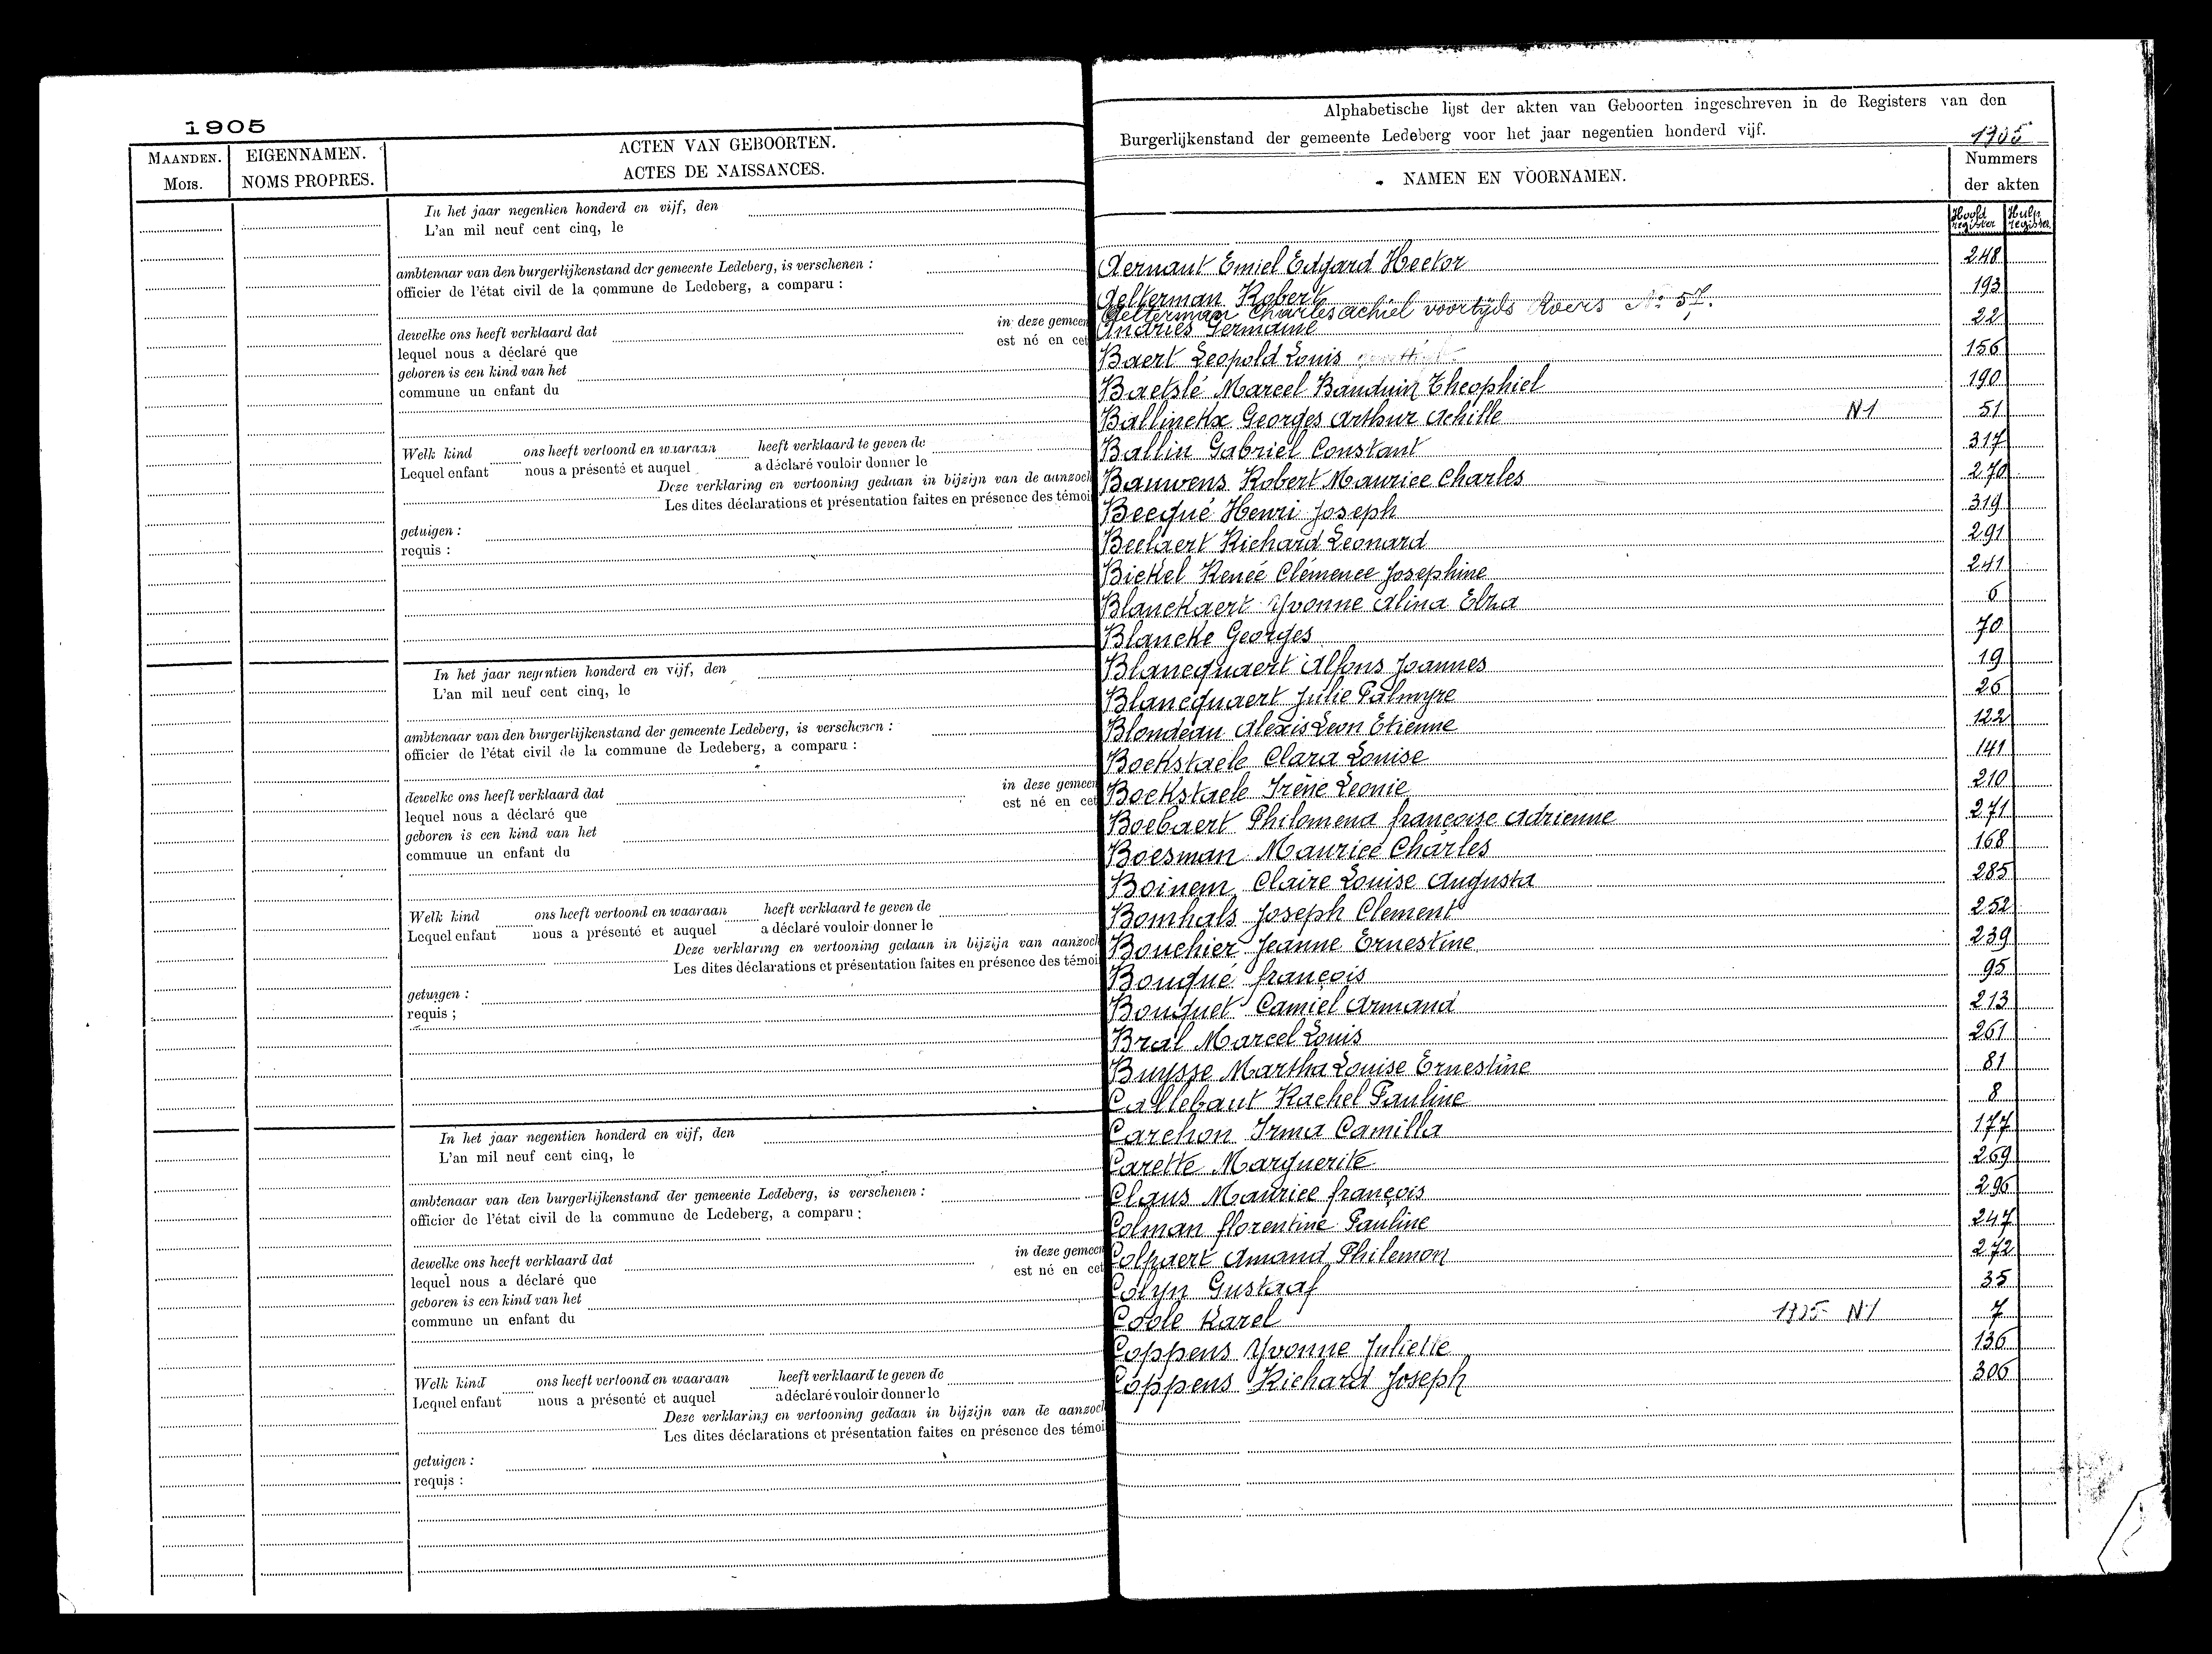 1905
MAANDEN.
MOIS.
EIGENNAMEN.
NOMS PROPRES.
ACTEN VAN GEBOORTEN.
ACTES DE NAISSANCES.
In het jaar negentien honderd en vijf, den
L'an mil neuf cent cinq, le
ambtenaar van den burgerlijkenstand der gemeente Ledeberg, is verschenen :
officier de l'état civil de la commune de Ledeberg, a comparu :
dewelke ons heeft verklaard dat in deze gemeen
lequel nous a déclaré que est né en cet
geboren is een kind van het
commune un enfant du
Welk kind ons heeft vertoond en waaraan heeft verklaard te geven de
Lequel enfant nous a présenté et auquel a déclaré vouloir donner le
Deze verklaring en vertooning gedaan in bijzijn van de aanzoch
Les dites déclarations et présentation faites en présence des témoi
getuigen :
requis :
In het jaar negentien honderd en vijf, den
L'an mil neuf cent cinq, le
ambtenaar van den burgerlijkenstand der gemeente Ledeberg, is verschenen :
officier de l'état civil de la commune de Ledeberg, a comparu :
dewelke ons heeft verklaard dat in deze gemeen
lequel nous a déclaré que est né en cet
geboren is een kind van het
commune un enfant du
Welk kind ons heeft vertoond en waaraan heeft verklaard te geven de
Lequel enfant nous a présenté et auquel a déclaré vouloir donner le
Deze verklaring en vertooning gedaan in bijzijn van aanzoch
Les dites déclarations et présentation faites en présence des témoi
getuigen :
requis ;
In het jaar negentien honderd en vijf, den
L'an mil neuf cent cinq, le
ambtenaar van den burgerlijkenstand der gemeente Ledeberg, is verschenen :
officier de l'état civil de la commune de Ledeberg, a comparu :
dewelke ons heeft verklaard dat in deze gemeen
lequel nous a déclaré que est né en cet
geboren is een kind van het
commune un enfant du
Welk kind ons heeft vertoond en waaraan heeft verklaard te geven de
Lequel enfant nous a présenté et auquel a déclaré vouloir donner le
Deze verklaring en vertooning gedaan in bijzijn van de aanzoch
Les dites déclarations et présentation faites en présence des témoi
getuigen :
requis :
Alphabetische lijst der akten van Geboorten ingeschreven in de Registers van den
Burgerlijkenstand der gemeente Ledeberg voor het jaar negentien honderd vijf. 1905
NAMEN EN VOORNAMEN.
Nummers
der akten
Hoofd register Hulp register
Aernaut Emiel Edgard Hector 248
Aelterman Robert 193
Aelterman Charles Achiel voortijds Roers No 57.
Andries Germaine 22
Baert Leopold Louis 156
Baetslé Marcel Bauduin Theophiel 190
Ballinckx Georges Arthur Achille N1 51
Ballin Gabriel Constant 317
Bauwens Robert Maurice Charles 270
Becqué Henri Joseph 319
Beelaert Richard Leonard 291
Bickel Renée Clémence Josephine 241
Blanckaert Yvonne Alina Elza 6
Blancke Georges 70
Blancquaert Alfons Joannes 19
Blancquaert Julie Palmyre 26
Blondeau Alexis Leon Etienne 122
Bockstaele Clara Louise 141
Bockstaele Irène Leonie 210
Boebaert Philomena Françoise Adrienne 271
Boesman Maurice Charles 168
Boinem Claire Louise Augusta 285
Bomhals Joseph Clement 252
Bouchier Jeanne Ernestine 239
Bouqué François 95
Bouquet Camiel Armand 213
Bral Marcel Louis 261
Buysse Martha Louise Ernestine 81
Callebaut Rachel Pauline 8
Carchon Irma Camilla 177
Carette Marguerite 269
Claus Maurice François 296
Colman Florentine Pauline 247
Colpaert Amand Philemon 272
Colyn Gustaaf 35
Coole Karel N1 7
Coppens Yvonne Juliette 136
Coppens Richard Joseph 306